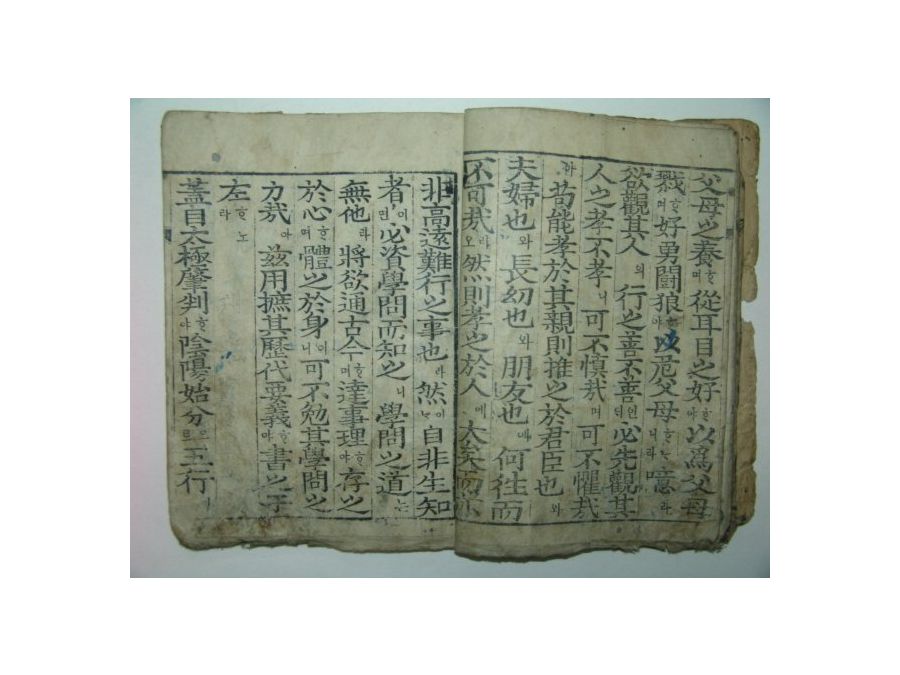 父母之養ᄒᆞ며 從耳目之好ᄒᆞ야 以爲父母
戮ᄒᆞ며 好勇鬪狼ᄒᆞ야 以危父母ᄒᆞᄂᆞ니라 噫라
欲觀其人의 行之善不善인딘 必先觀其
人之孝不孝니 可不愼哉며 可不懼哉
아 苟能孝於其親則推之於君臣也와
夫婦也와 長幼也와 朋友也애 何往而
不可哉라오 然則孝之於人에 大矣而亦
非高遠難行之事也라 然이ᄂᆞ 自非生知
者이면 必資學問而知之니 學問之道ᄂᆞᆫ
無他라 將欲通古今ᄒᆞ며 達事理ᄒᆞ야 存之
於心ᄒᆞ며 體之於身이니 可不勉其學問之
力哉아 玆用摭其歷代要義ᄒᆞ야 書之于
左ᄒᆞ노라
蓋自太極肇判ᄒᆞ야 陰陽始分으로 五行ㅣ